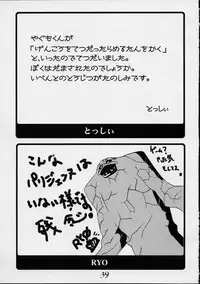 やぐもくんが
「げんこうをてつだったらめるたんをかく」
と、いったのでてつだいました。
ぼくはだまされたのでしょうか。
いべんとのとうじつがたのしみです。
とっしぃ
とっしぃ
こんな
パリジェンヌは
いない様です
残念!
RYO
39